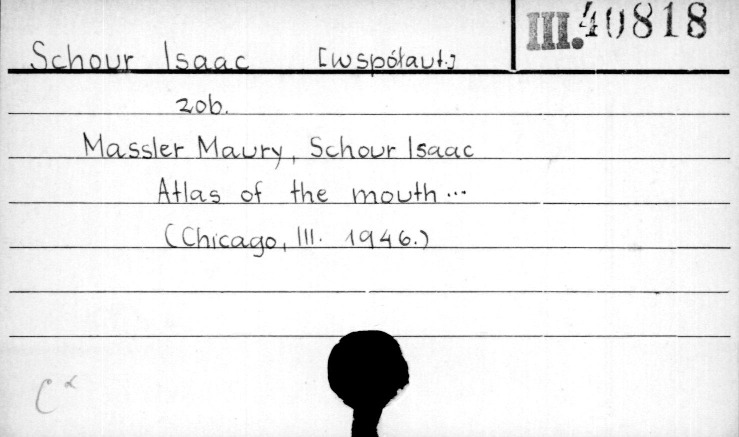 III. 40818
Schour Isaac [współaut.]
zob.
Massler Maury, Schour Isaac
Atlas of the mouth...
(Chicago, Ill. 1946.)